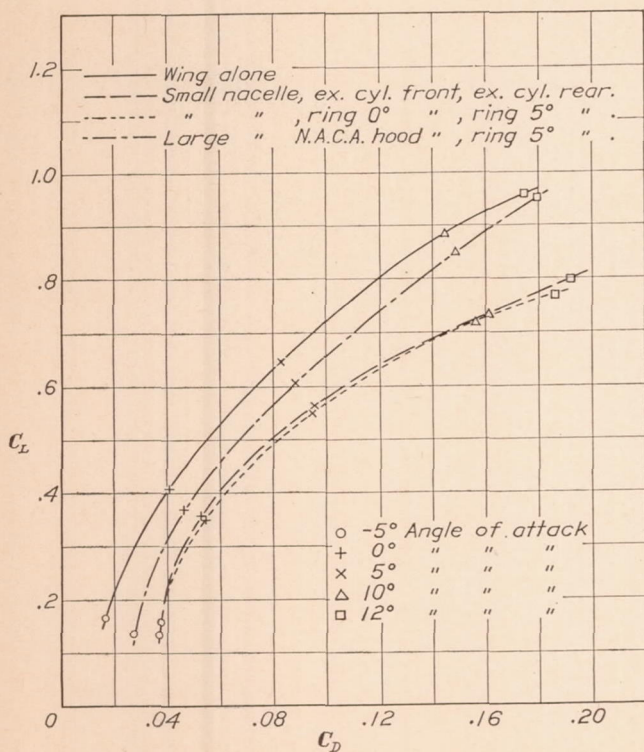 1.2
Wing alone
Small nacelle, ex. cyl. front, ex. cyl. rear.
" " , ring 0° " , ring 5° " .
Large " N.A.C.A. hood " , ring 5° " .
1.0
.8
.6
C_L
.4
○ -5° Angle of attack
+ 0° " " "
× 5° " " "
△ 10° " " "
□ 12° " " "
.2
0 .04 .08 .12 .16 .20
C_D